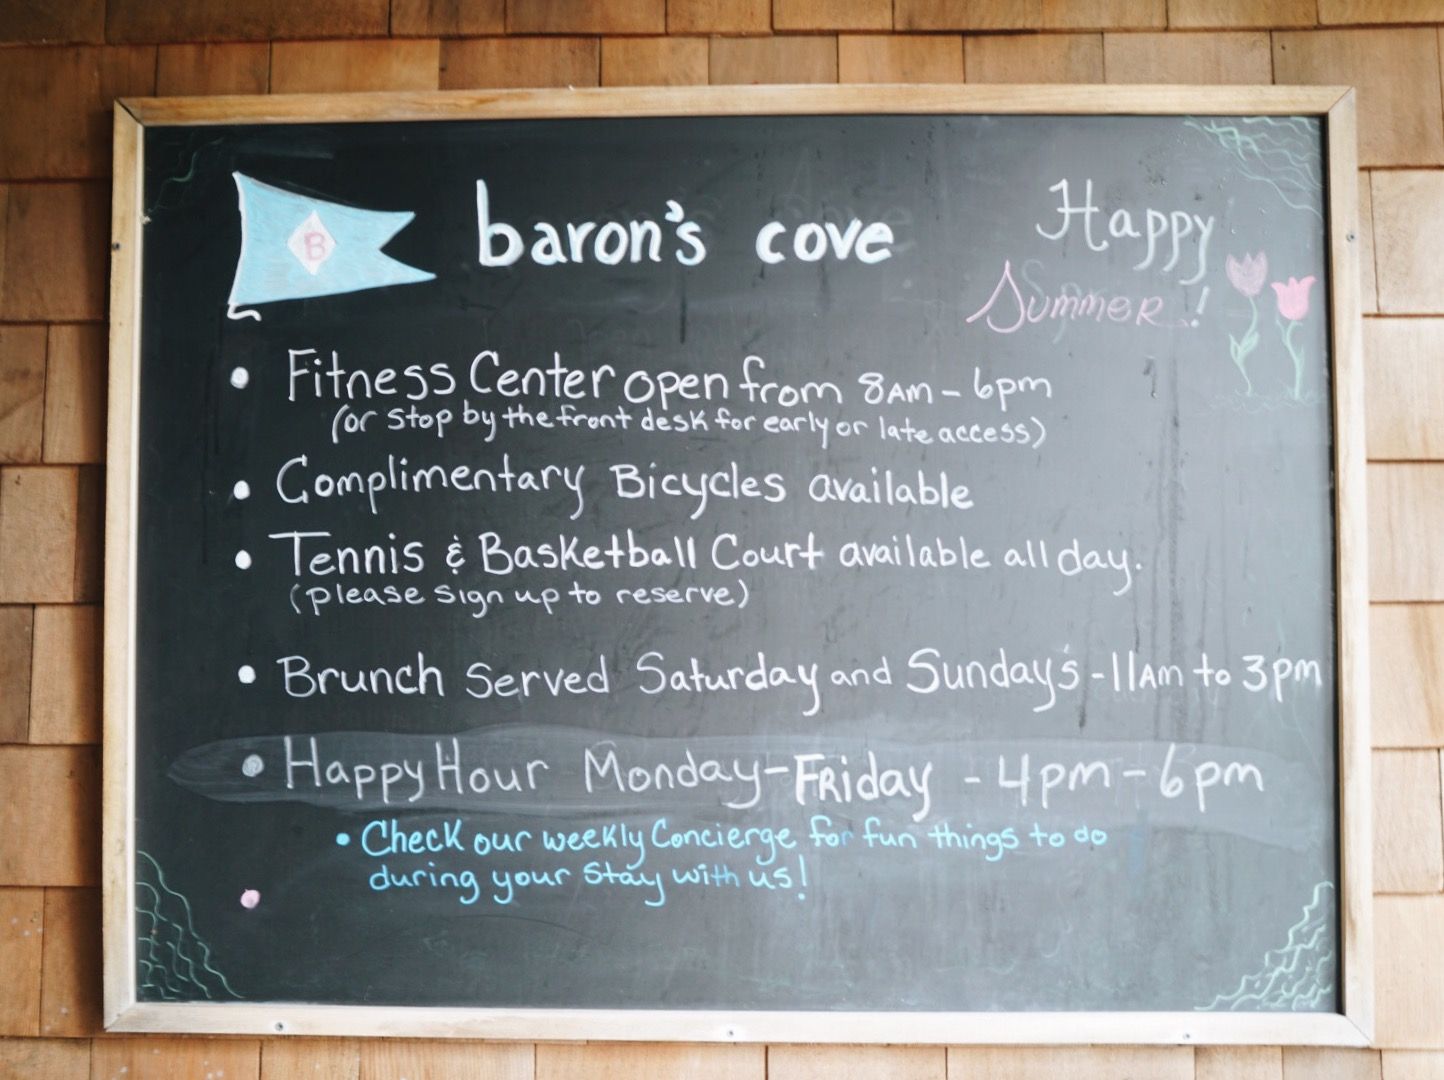 B
baron's cove
Happy
Summer!
• Fitness Center open from 8AM - 6pm
(or stop by the front desk for early or late access)
• Complimentary Bicycles available
• Tennis & Basketball Court available all day.
(please sign up to reserve)
• Brunch Served Saturday and Sunday's - 11AM to 3pm
• Happy Hour Monday - FRiday - 4pm - 6pm
• Check our weekly Concierge for fun things to do
during your stay with us!